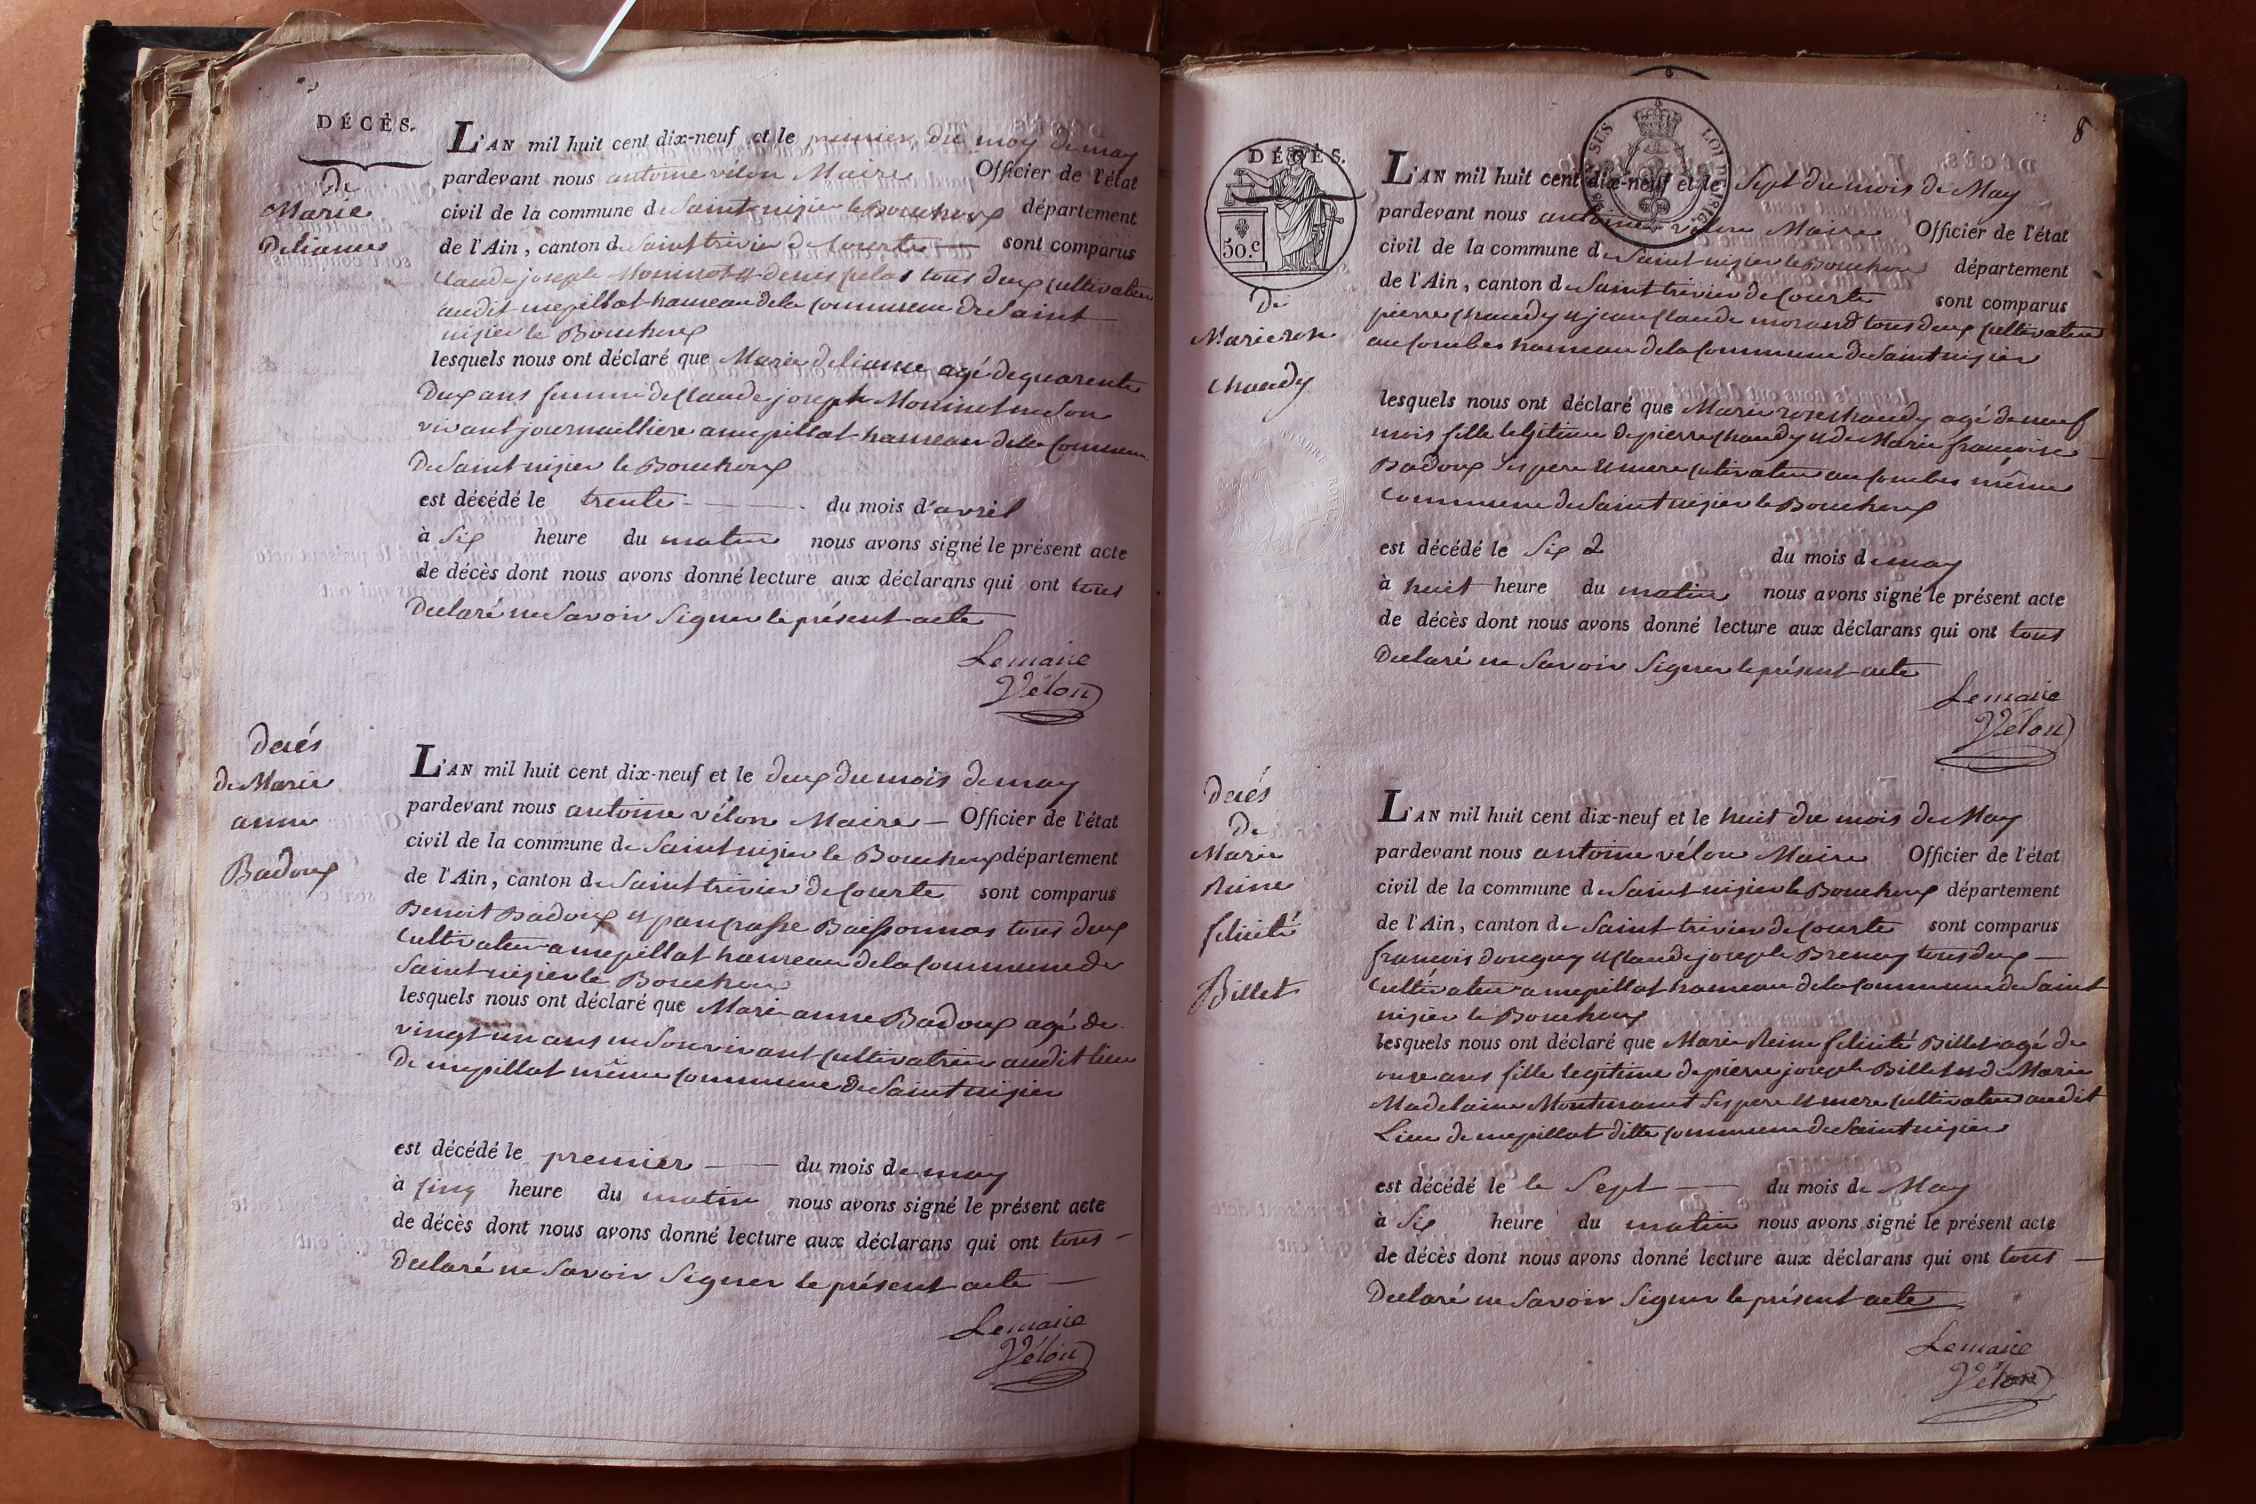 DÉCÈS.
De
Marie
Deliance
L'AN mil huit cent dix-neuf et le premier du moy de may
pardevant nous antoine vélon Maire Officier de l'état
civil de la commune de Saint nizier le Bouchoux département
de l'Ain, canton de Saint trivier de Courte sont comparus
Claude joseph Moninot et denis pelos tous deux cultivateur
audit mepillat hameau de la commune de Saint
nizier le Bouchoux
lesquels nous ont déclaré que Marie deliance agé de quarente
Deux ans femme de Claude joseph Moninot en son
vivant journailliere a mepillat hameau de la Commune
De Saint nizier le Bouchoux
est décédé le trente du mois d'avril
à Six heure du matin nous avons signé le présent acte
de décès dont nous avons donné lecture aux déclarans qui ont tous
Declaré ne Savoir Signer le présent acte
Lemaire
Vélon
Decés
de Marie
anne
Badoux
L'AN mil huit cent dix-neuf et le deux du mois de may
pardevant nous antoine vélon Maire Officier de l'état
civil de la commune de Saint nizier le Bouchoux département
de l'Ain, canton de Saint trivier de Courte sont comparus
Benoit Badoux et pancrasse Boissonnas tous deux
Cultivateur a mepillat hameau de la commune de
Saint nizier le Bouchoux
lesquels nous ont déclaré que Marie anne Badoux agé de
vingt un ans en Son vivant cultivatrice audit lieu
De mepillat même commune de Saint nizier
est décédé le premier du mois de may
à Cinq heure du matin nous avons signé le présent acte
de décès dont nous avons donné lecture aux déclarans qui ont tous
Declaré ne Savoir Signer le présent acte
Lemaire
Vélon
8
DÉCÈS.
50.c
De
Marie rose
Chaudy
L'AN mil huit cent dix-neuf et le Sept du mois de May
pardevant nous antoine vélon Maire Officier de l'état
civil de la commune de Saint nizier le Bouchoux département
de l'Ain, canton de Saint trivier de Courte sont comparus
pierre Chaudy et jean Claude morand tous deux Cultivateur
au Combes hameau de la Commune de Saint nizier
lesquels nous ont déclaré que Marie rose Chaudy agé de neuf
mois fille legitime de pierre Chaudy et de Marie francoise
Badoux Ses pere et mere cultivateur au Combes même
Commune de Saint nizier le Bouchoux
est décédé le Six du mois de may
à huit heure du matin nous avons signé le présent acte
de décès dont nous avons donné lecture aux déclarans qui ont tous
Declaré ne Savoir Signer le présent acte
Lemaire
Vélon
Decés
De
Marie
Reine
felicité
Billet
L'AN mil huit cent dix-neuf et le huit du mois de May
pardevant nous antoine vélon Maire Officier de l'état
civil de la commune de Saint nizier le Bouchoux département
de l'Ain, canton de Saint trivier de Courte sont comparus
francois donguy et Claude joseph Brenay tous deux
Cultivateur a mepillat hameau de la Commune de Saint
nizier le Bouchoux
lesquels nous ont déclaré que Marie Reine felicité Billet agé de
onze ans fille legitime de pierre joseph Billet et de Marie
Madelaine Ses pere et mere Cultivateur audit
Lieu de mepillat ditte commune de Saint nizier
est décédé le le Sept du mois de May
à Six heure du matin nous avons signé le présent acte
de décès dont nous avons donné lecture aux déclarans qui ont tous
Declaré ne Savoir Signer le présent acte
Lemaire
Vélon